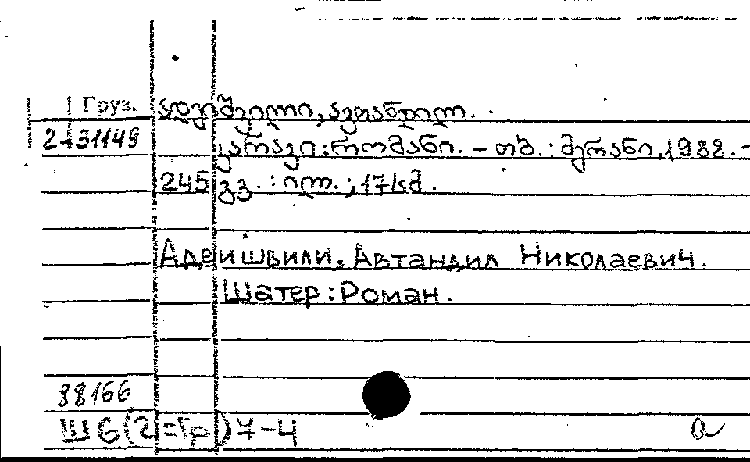 Груз. ადეიშვილი, ავთანდილ.
2-31149 კარავი : რომანი. - თბ. : მერანი, 1988. -
245 გვ. : ილ. ; 17 სმ.
Адеишвили, Автандил Николаевич.
Шатер : Роман.
88166
Ш6(2=Гр)7-4